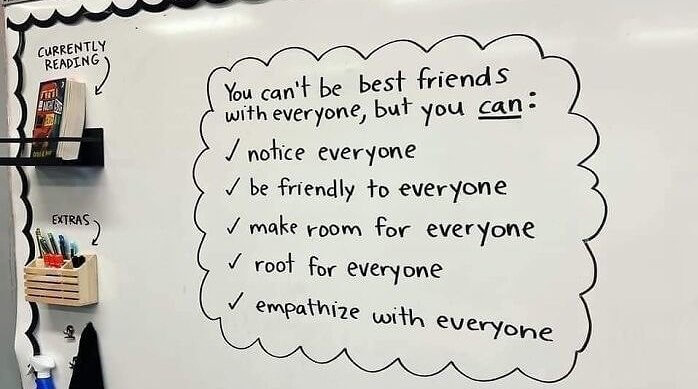 CURRENTLY
READING
You can't be best friends
with everyone, but you can:
✓ notice everyone
✓ be friendly to everyone
✓ make room for everyone
✓ root for everyone
✓ empathize with everyone
EXTRAS